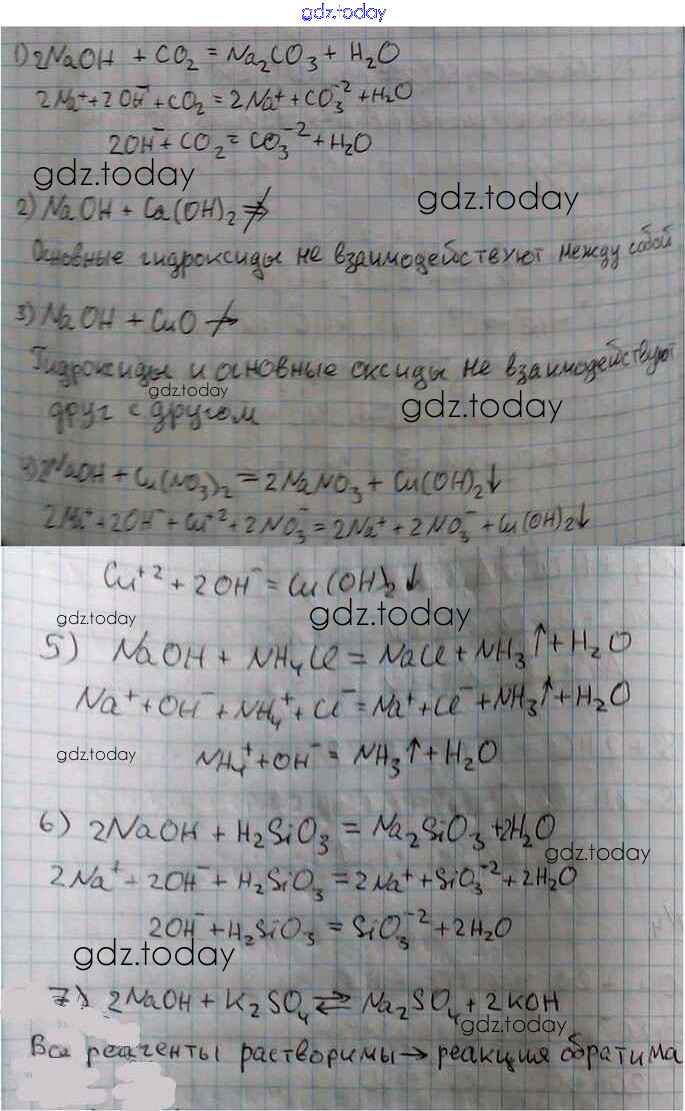 gdz.today
1) 2NaOH + CO₂ = Na₂CO₃ + H₂O
2Na⁺ + 2OH⁻ + CO₂ = 2Na⁺ + CO₃⁻² + H₂O
2OH⁻ + CO₂ = CO₃⁻² + H₂O
gdz.today
gdz.today
2) NaOH + Ca(OH)₂ ⇏
Основные гидроксиды не взаимодействуют между собой
3) NaOH + CuO ↛
Гидроксиды и основные оксиды не взаимодействуют
gdz.today
друг с другом
gdz.today
4) 2NaOH + Cu(NO₃)₂ = 2NaNO₃ + Cu(OH)₂↓
2Na⁺ + 2OH⁻ + Cu⁺² + 2NO₃⁻ = 2Na⁺ + 2NO₃⁻ + Cu(OH)₂↓
Cu⁺² + 2OH⁻ = Cu(OH)₂↓
gdz.today
gdz.today
5) NaOH + NH₄Cl = NaCl + NH₃↑ + H₂O
Na⁺ + OH⁻ + NH₄⁺ + Cl⁻ = Na⁺ + Cl⁻ + NH₃↑ + H₂O
gdz.today
NH₄⁺ + OH⁻ = NH₃↑ + H₂O
6) 2NaOH + H₂SiO₃ = Na₂SiO₃ + 2H₂O
gdz.today
2Na⁺ + 2OH⁻ + H₂SiO₃ = 2Na⁺ + SiO₃⁻² + 2H₂O
2OH⁻ + H₂SiO₃ = SiO₃⁻² + 2H₂O
gdz.today
7) 2NaOH + K₂SO₄ ⇄ Na₂SO₄ + 2KOH
gdz.today
Все реагенты растворимы → реакция обратима